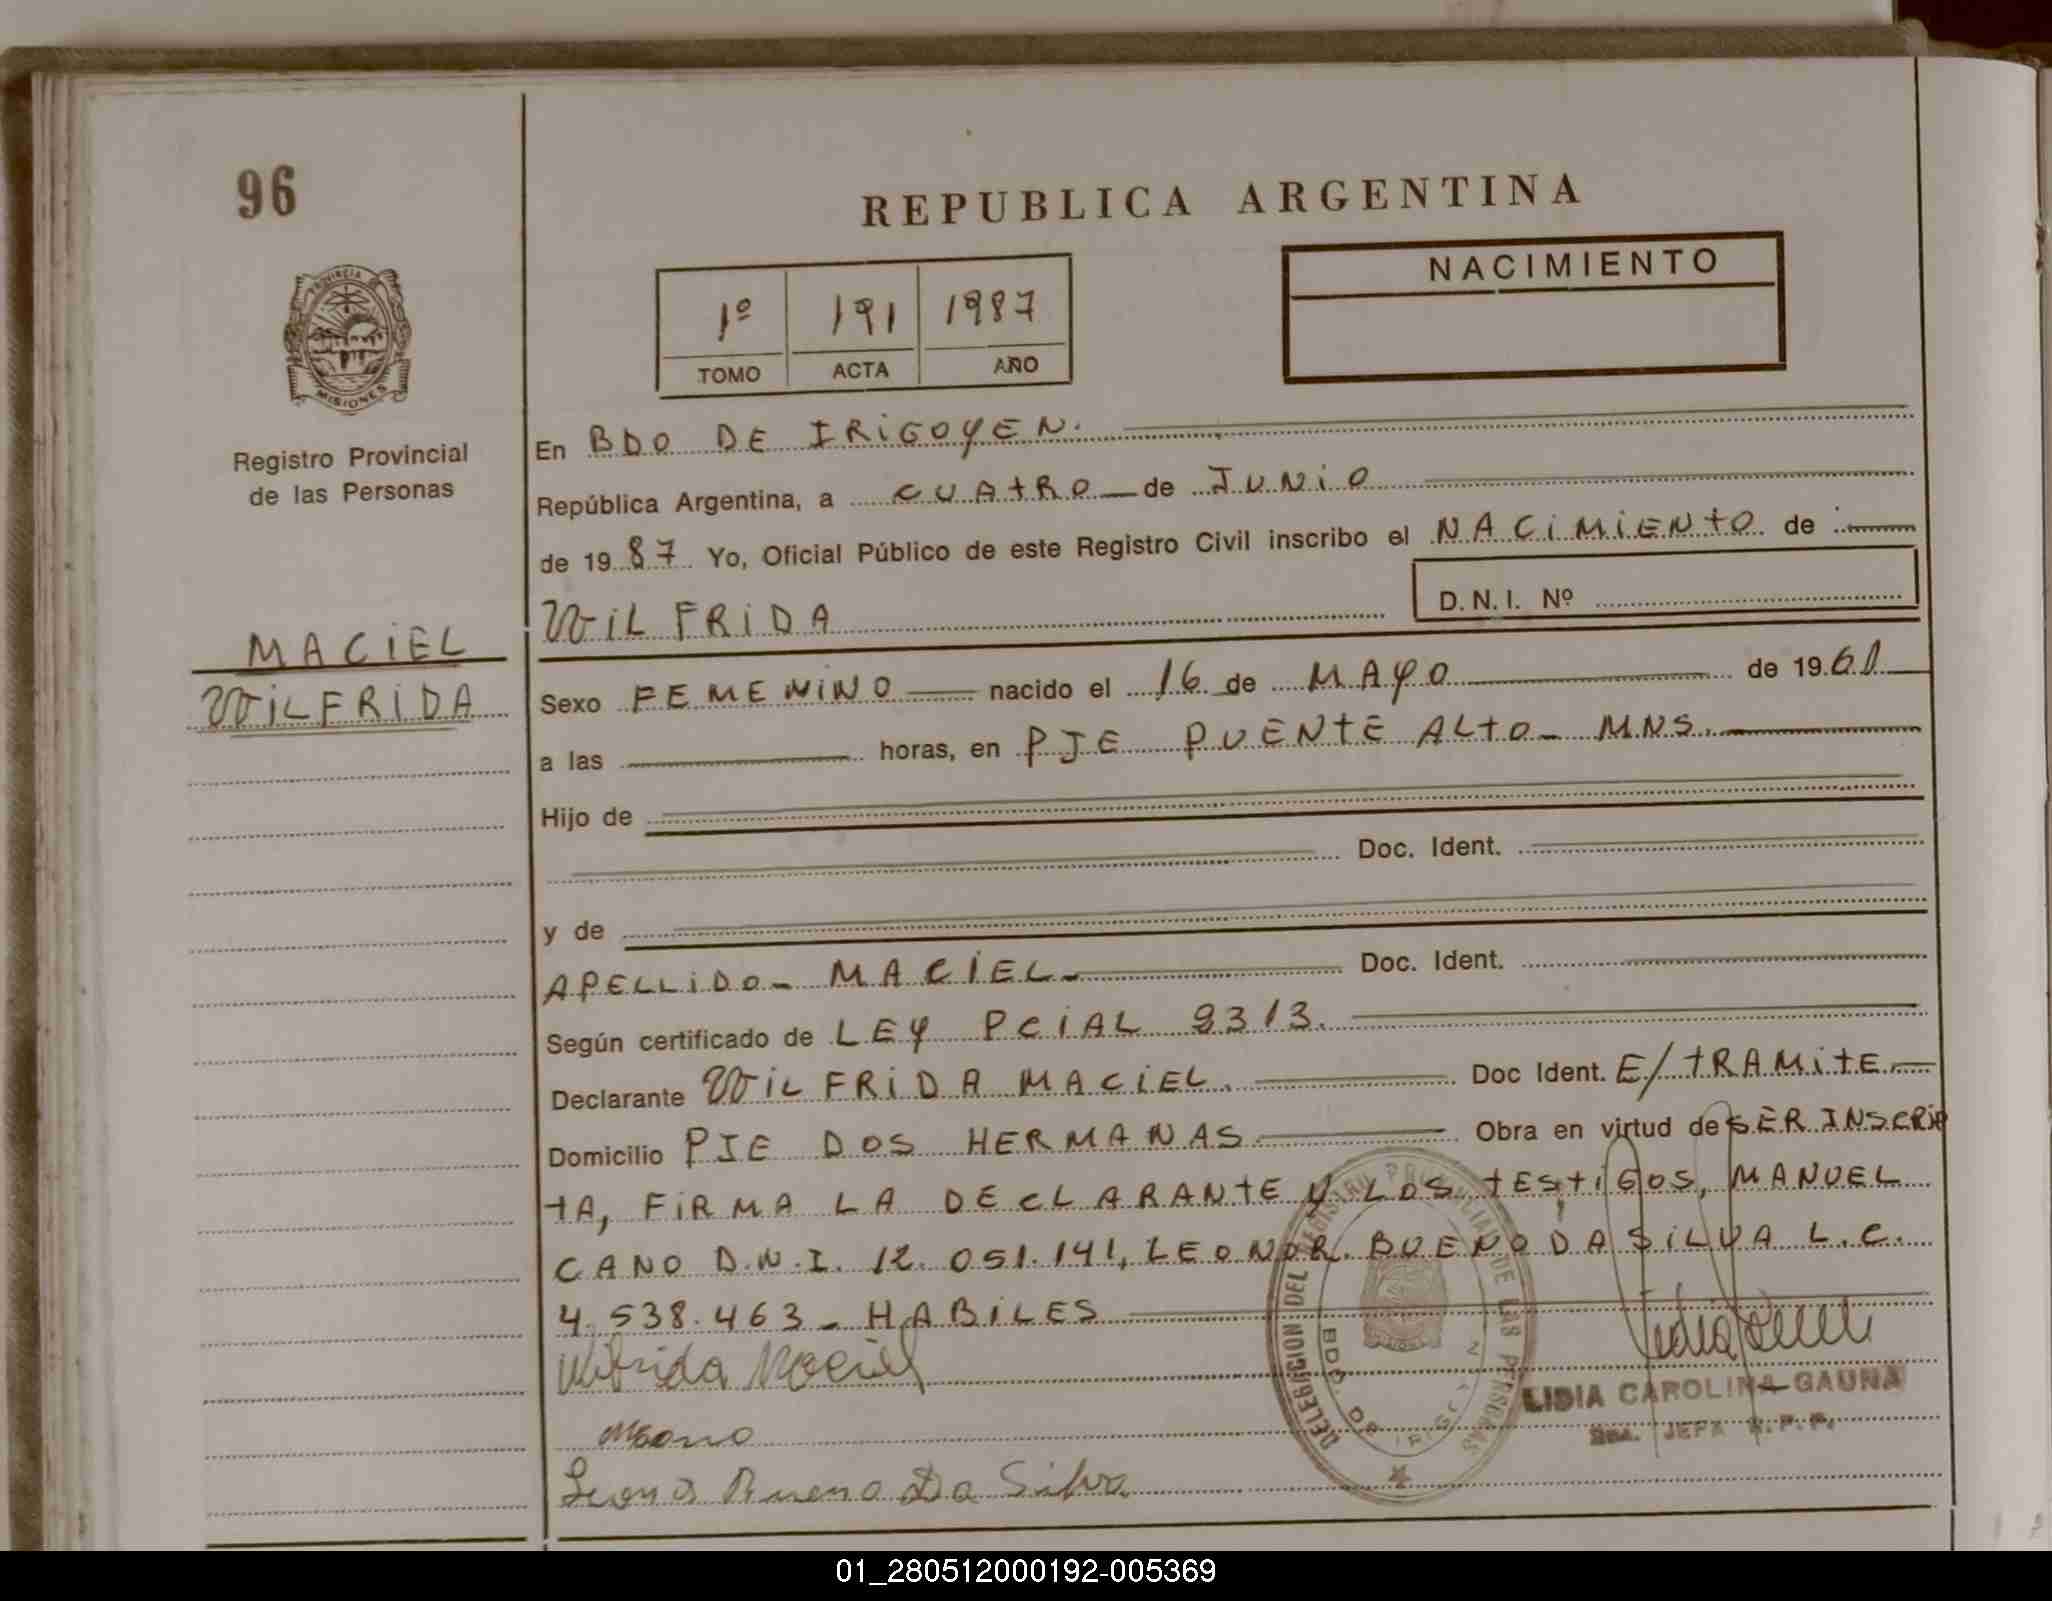 96
REPUBLICA ARGENTINA
NACIMIENTO
1º 191 1987
TOMO ACTA AÑO
PROVINCIA
MISIONES
Registro Provincial
de las Personas
MACIEL
WILFRIDA
En BDO DE IRIGOYEN.
República Argentina, a CUATRO de JUNIO
de 1987 Yo, Oficial Público de este Registro Civil inscribo el NACIMIENTO de
WILFRIDA D.N.I. Nº
Sexo FEMENINO nacido el 16 de MAYO de 1961
a las horas, en PJE PUENTE ALTO - MNS.
Hijo de
Doc. Ident.
y de
APELLIDO - MACIEL - Doc. Ident.
Según certificado de LEY PCIAL 2313.
Declarante WILFRIDA MACIEL. Doc Ident. E/TRAMITE.
Domicilio PJE DOS HERMANAS Obra en virtud de SER INSCRIP
TA, FIRMA LA DECLARANTE Y LOS TESTIGOS, MANUEL
CANO D.N.I. 12.051.141, LEONOR BUENO DA SILVA L.C.
4.538.463 - HABILES
Wilfrida Maciel
LIDIA CAROLINA GAUNA
JEFA R.P.P.
Bueno Da Silva
DELEGACION DEL REGISTRO PROVINCIAL DE LAS PERSONAS
BDO. DE IRIG
01_280512000192-005369